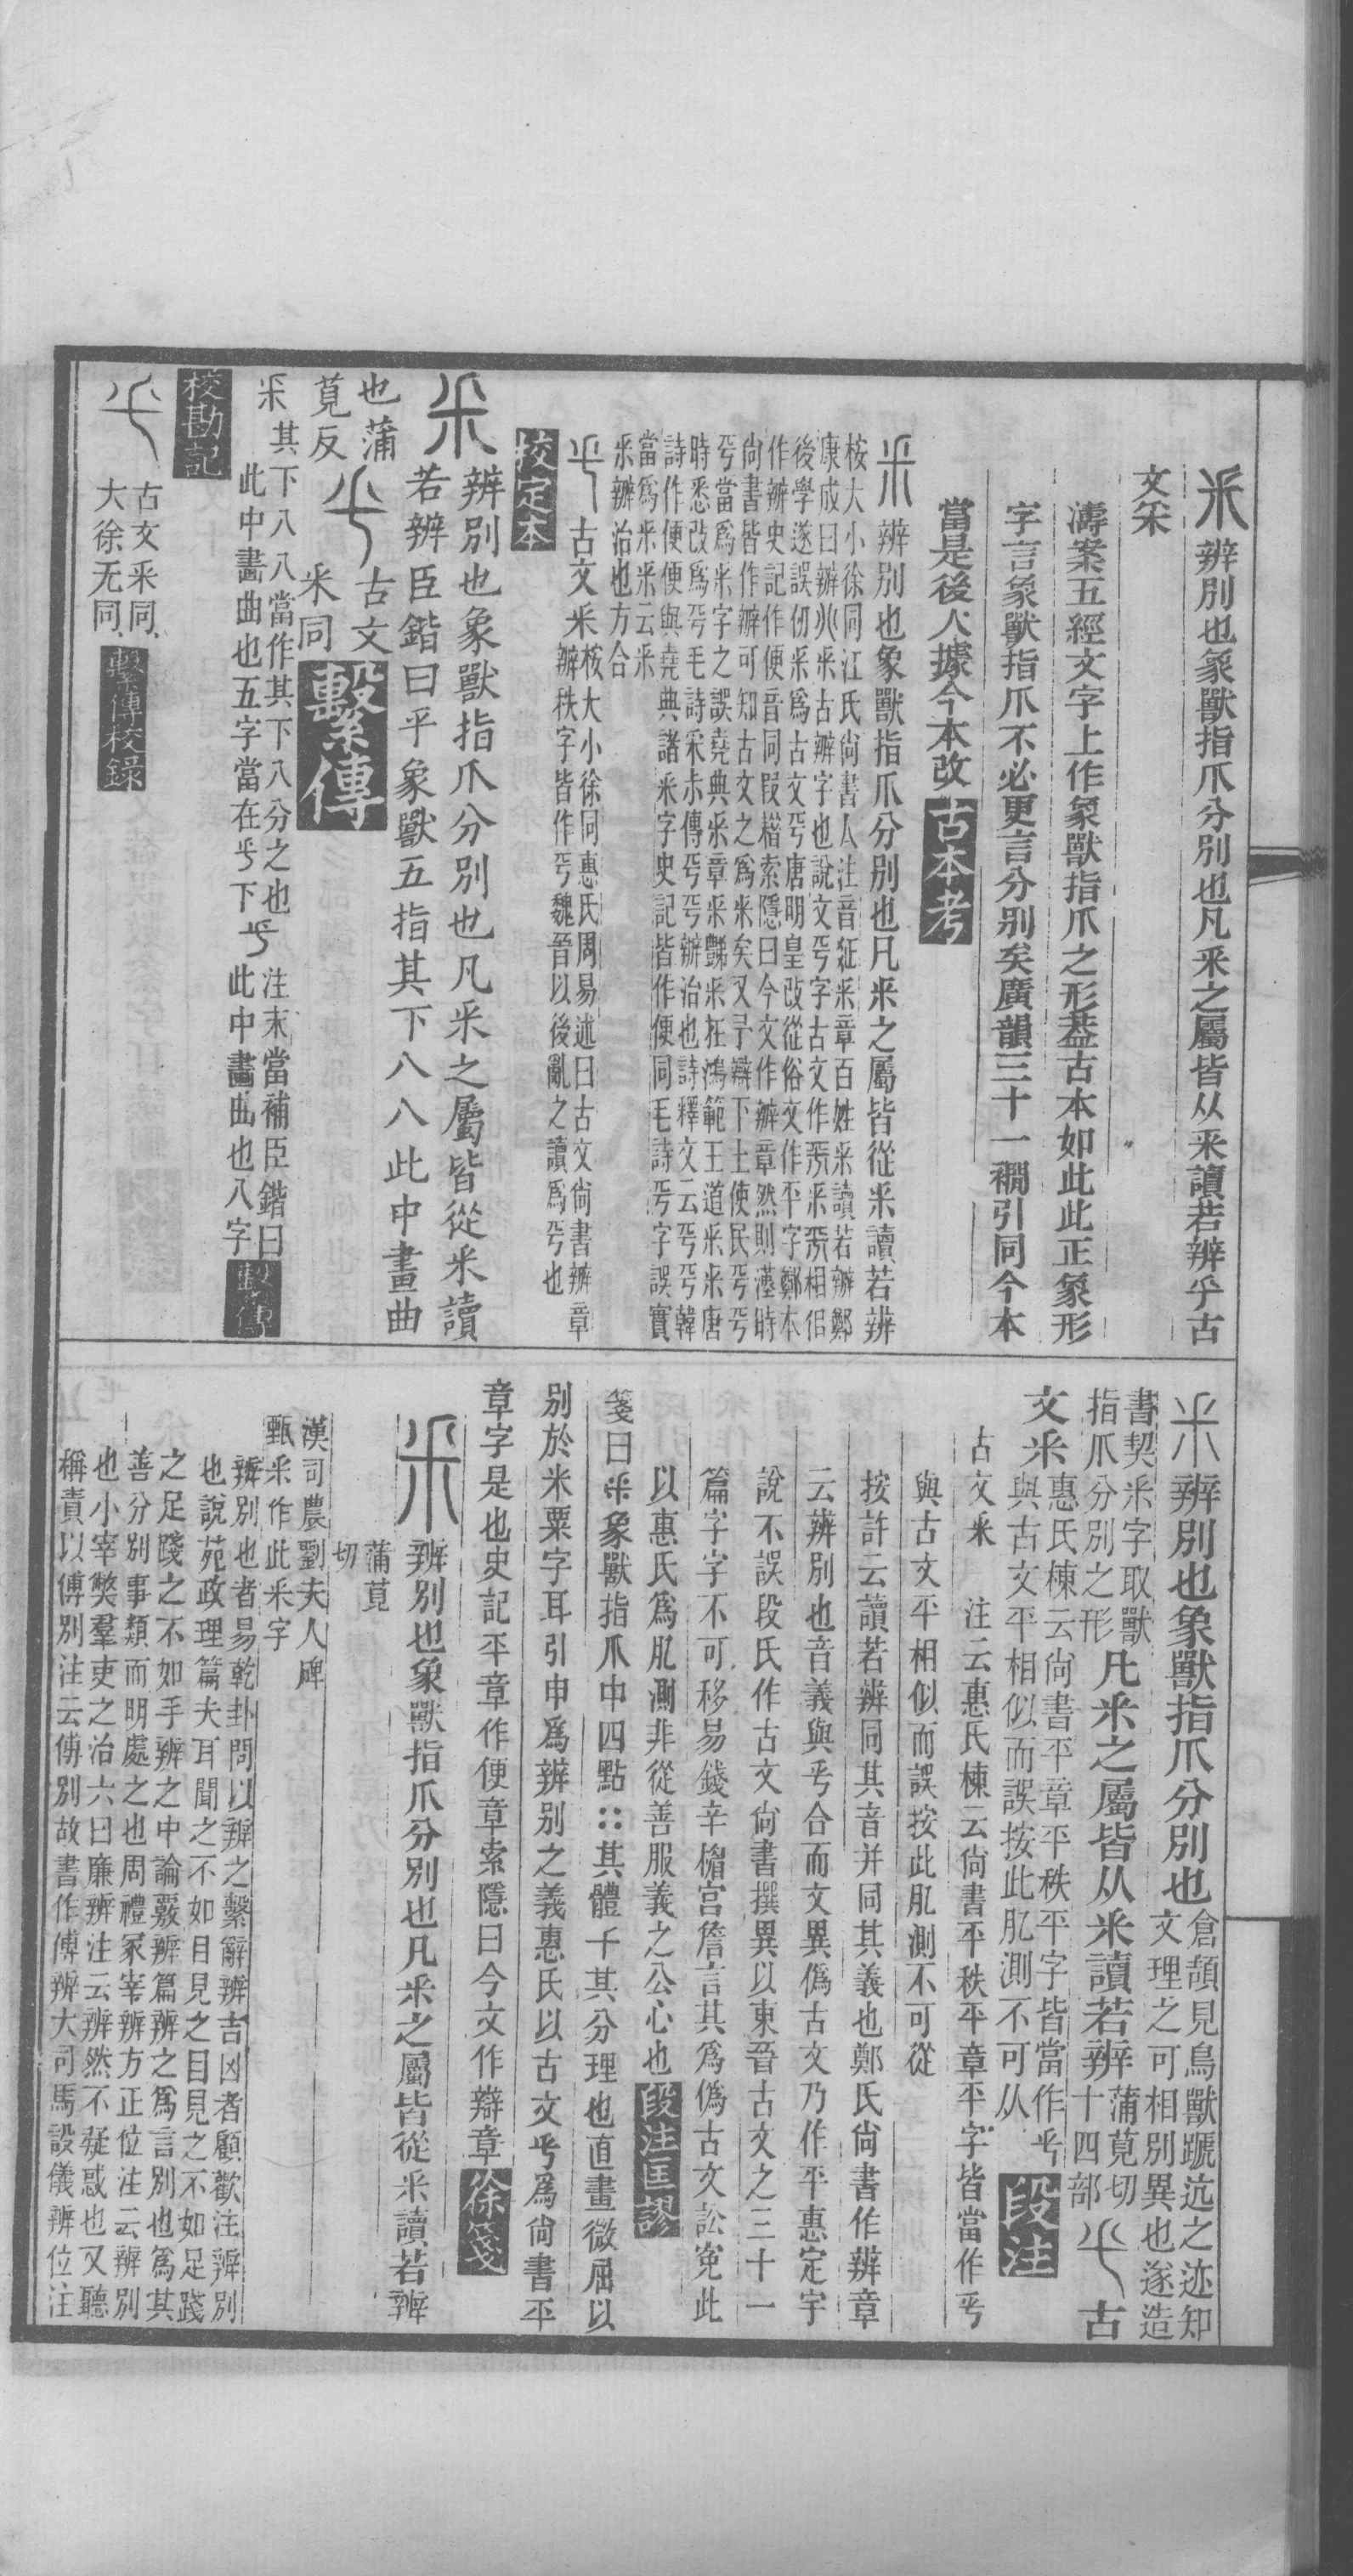 釆辨別也象獸指爪分別也凡釆之屬皆从釆讀若辨𠂒古
文釆
濤案五經文字上作象獸指爪之形葢古本如此此正象形
字言象獸指爪不必更言分別矣廣韻三十一襉引同今本
當是後人據今本改古本考
釆辨別也象獸指爪分別也凡釆之屬皆從釆讀若辨
桉大小徐同江氏尙書人注音疏釆章百姓釆讀若辨鄭
康成曰辧
後學遂誤仞釆爲古文𠂒唐明皇改從俗文作平字鄭本
作辧史記作便音同叚楷索隱曰今文作辧章然則漢時
尙書皆作辧可知古文之爲釆矣又予辯下土使民𠂒𠂒
𠂒當爲釆字之誤堯典釆章釆豑釆在鴻範王道釆釆唐
時悉改爲𠂒毛詩釆尗傳𠂒𠂒辧治也詩釋文云𠂒𠂒韓
詩作便便與堯典諸釆字史記皆作便同毛詩𠂒字誤實
當爲釆釆云釆
釆辧治也方合
𠂒古文釆桉大小徐同惠氏周易述曰古文尙書辧章
辧秩字皆作𠂒魏晉以後亂之讀爲𠂒也
校定本
釆辨別也象獸指爪分別也凡釆之屬皆從釆讀
若辨臣鍇曰平象獸五指其下八八此中畫曲
也蒲
莧反𠂒古文
釆同繫傳
釆其下八八當作其下八分之也𠂒注末當補臣鍇曰
此中畵曲也五字當在𠂒下此中畵曲也八字繫傳
校勘記
𠂒古文釆同
大徐无同繫傳校錄
釆辨別也象獸指爪分別也倉頡見鳥獸蹏迒之迹知
文理之可相別異也遂造
書契釆字取獸
指爪分別之形凡釆之屬皆从釆讀若辨蒲莧切
十四部𠂒古
文釆惠氏棟云尙書平章平秩平字皆當作𠂒
與古文平相似而誤按此肊測不可从段注
古文釆 注云惠氏棟云尙書平秩平章平字皆當作𠂒
與古文平相似而誤按此肊測不可從
按許云讀若辨同其音并同其義也鄭氏尙書作辨章
云辨別也音義與𠂒合而文異僞古文乃作平惠定宇
說不誤段氏作古文尙書撰異以東晉古文之三十一
篇字字不可移易錢辛楣宮詹言其爲僞古文訟寃此
以惠氏爲肊測非從善服義之公心也段注匡謬
箋曰釆象獸指爪中四點∷其體千其分理也直畫微屈以
別於米粟字耳引申爲辨別之義惠氏以古文𠂒爲尙書平
章字是也史記平章作便章索隱曰今文作辯章徐箋
釆辨別也象獸指爪分別也凡釆之屬皆從釆讀若辨
蒲莧
切
漢司農劉夫人碑
甄釆作此釆字
辨別也者易乾卦問以辨之繫辭辨吉凶者顧歡注辨別
也說苑政理篇夫耳聞之不如目見之目見之不如足踐
之足踐之不如手辨之中論覈辨篇辨之爲言別也爲其
善分別事類而明處之也周禮冢宰辨方正位注云辨別
也小宰獘羣吏之治六曰廉辨注云辨然不疑惑也又聽
稱責以傅別注云傅別故書作傅辨大司馬設儀辨位注